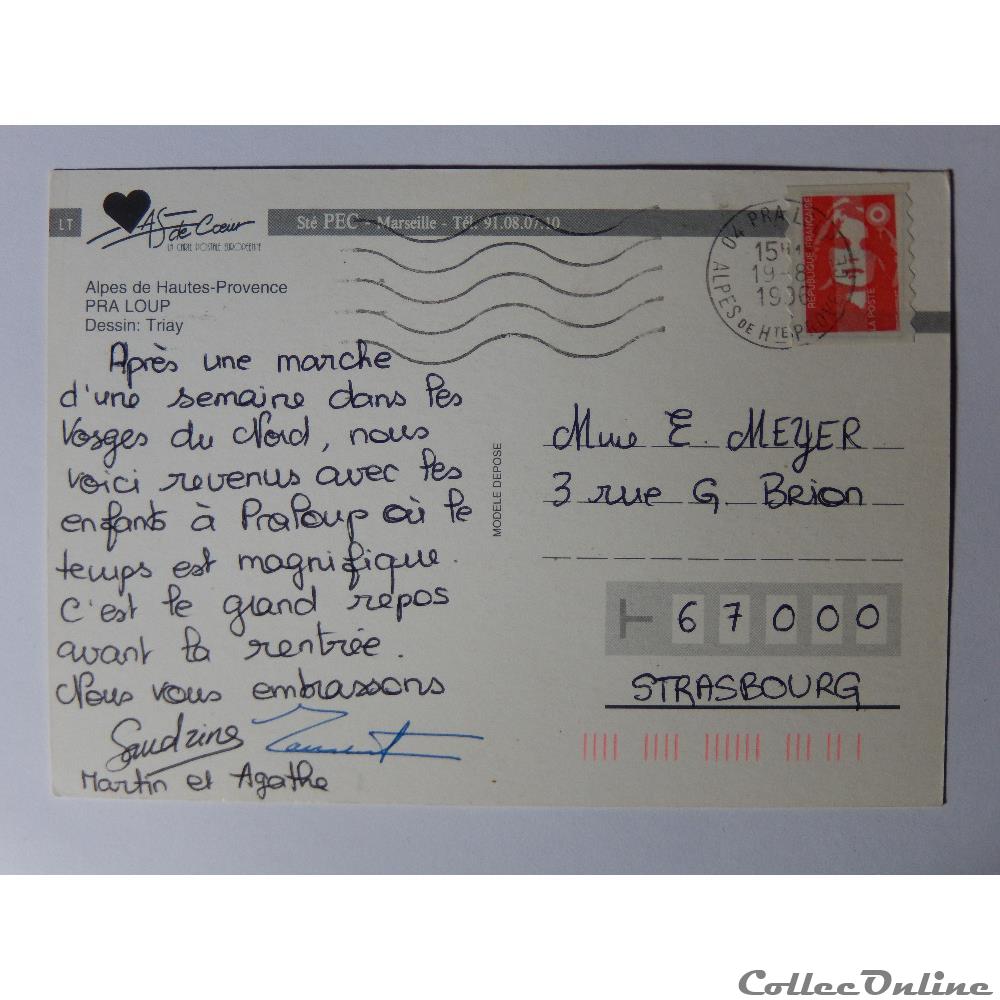 LT
AS de Coeur
LA CARTE POSTALE EUROPEENNE
Sté PEC - Marseille - Tél. 91.08.07.10
Alpes de Hautes-Provence
PRA LOUP
Dessin: Triay
04 PRA
15H
19-8
1996
ALPES DE HTE
REPUBLIQUE FRANÇAISE
LA POSTE
Après une marche
d'une semaine dans les
Vosges du Nord, nous
voici revenus avec les
enfants à Praloup où le
temps est magnifique.
C'est le grand repos
avant la rentrée.
Nous vous embrassons
Sandrine Laurent
Martin et Agathe
MODELE DEPOSE
Mme E. MEYER
3 rue G. Brion
67000
STRASBOURG
CollecOnline